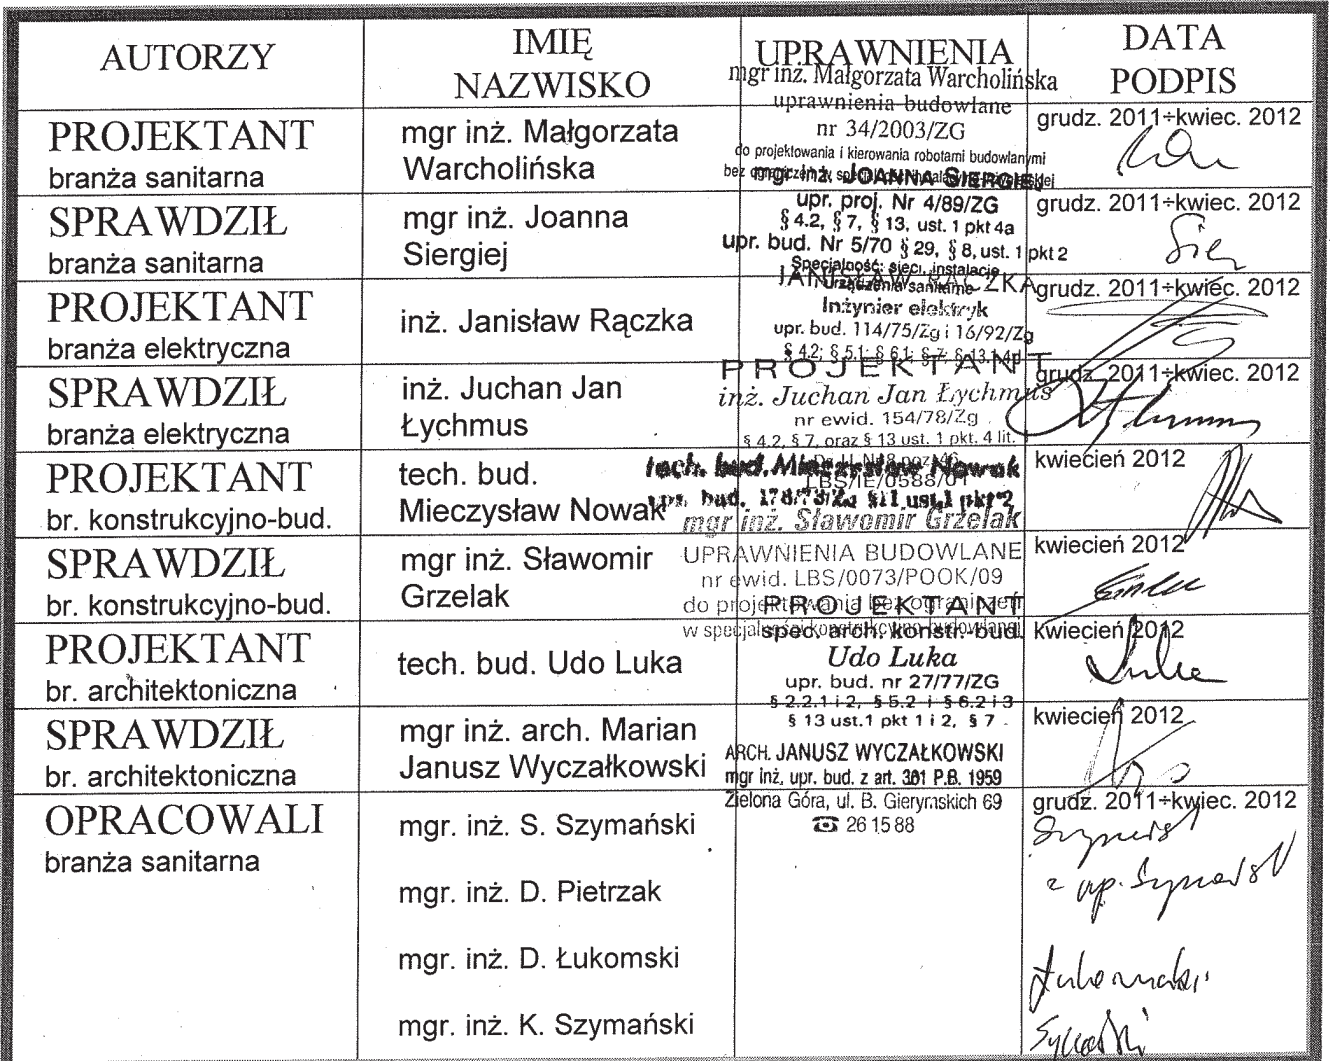 AUTORZY
IMIĘ
NAZWISKO
UPRAWNIENIA
DATA
PODPIS
PROJEKTANT
branża sanitarna
mgr inż. Małgorzata
Warcholińska
mgr inż. Małgorzata Warcholińska
uprawnienia budowlane
nr 34/2003/ZG
do projektowania i kierowania robotami budowlanymi
grudz. 2011÷kwiec. 2012
SPRAWDZIŁ
branża sanitarna
mgr inż. Joanna
Siergiej
mgr inż. JOANNA SIERGIEJ
upr. proj. Nr 4/89/ZG
§ 4.2, § 7, § 13, ust. 1 pkt 4a
upr. bud. Nr 5/70 § 29, § 8, ust. 1 pkt 2
Specjalność: sieci, instalacje
Urządzenia sanitarne
grudz. 2011÷kwiec. 2012
PROJEKTANT
branża elektryczna
inż. Janisław Rączka
JANISŁAW RĄCZKA
Inżynier elektryk
upr. bud. 114/75/Zg i 16/92/Zg
§ 4.2; § 5.1; § 6.1; § 7; § 13.1.4d
grudz. 2011÷kwiec. 2012
SPRAWDZIŁ
branża elektryczna
inż. Juchan Jan
Łychmus
PROJEKTANT
inż. Juchan Jan Łychmus
nr ewid. 154/78/Zg
§ 4.2, § 7, oraz § 13 ust. 1 pkt. 4 lit.
LBS/IE/0588/01
grudz. 2011÷kwiec. 2012
PROJEKTANT
br. konstrukcyjno-bud.
tech. bud.
Mieczysław Nowak
tech. bud. Mieczysław Nowak
upr. bud. 178/73/Zg §11 ust.1 pkt 2
kwiecień 2012
SPRAWDZIŁ
br. konstrukcyjno-bud.
mgr inż. Sławomir
Grzelak
mgr inż. Sławomir Grzelak
UPRAWNIENIA BUDOWLANE
nr ewid. LBS/0073/POOK/09
do projektowania bez ograniczeń
w specjalności konstrukcyjno-budowlanej
kwiecień 2012
PROJEKTANT
br. architektoniczna
tech. bud. Udo Luka
PROJEKTANT
spec. arch. konstr-bud.
Udo Luka
upr. bud. nr 27/77/ZG
§ 2.2.1 i 2, § 5.2 i § 6.2 i 3
§ 13 ust.1 pkt 1 i 2, § 7
kwiecień 2012
SPRAWDZIŁ
br. architektoniczna
mgr inż. arch. Marian
Janusz Wyczałkowski
ARCH. JANUSZ WYCZAŁKOWSKI
mgr inż, upr. bud. z art. 361 P.B. 1959
Zielona Góra, ul. B. Gierymskich 69
☎ 26 15 88
kwiecień 2012
OPRACOWALI
branża sanitarna
mgr. inż. S. Szymański
mgr. inż. D. Pietrzak
mgr. inż. D. Łukomski
mgr. inż. K. Szymański
grudz. 2011÷kwiec. 2012